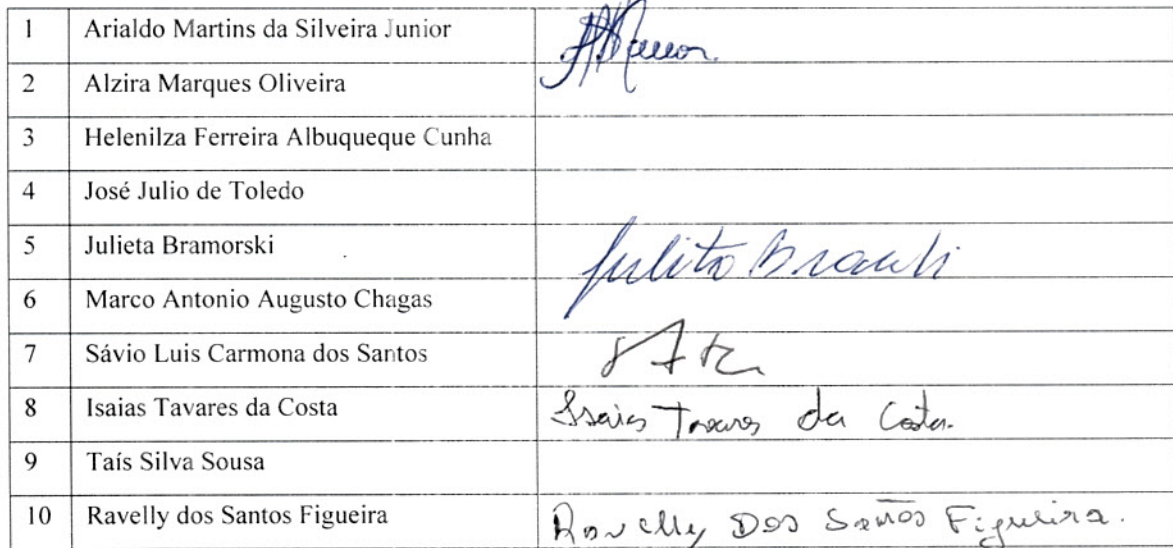 1 Arialdo Martins da Silveira Junior
2 Alzira Marques Oliveira
3 Helenilza Ferreira Albuqueque Cunha
4 José Julio de Toledo
5 Julieta Bramorski
6 Marco Antonio Augusto Chagas
7 Sávio Luis Carmona dos Santos
8 Isaias Tavares da Costa Isaias Tavares da Costa.
9 Taís Silva Sousa
10 Ravelly dos Santos Figueira Ravelly Dos Santos Figueira.